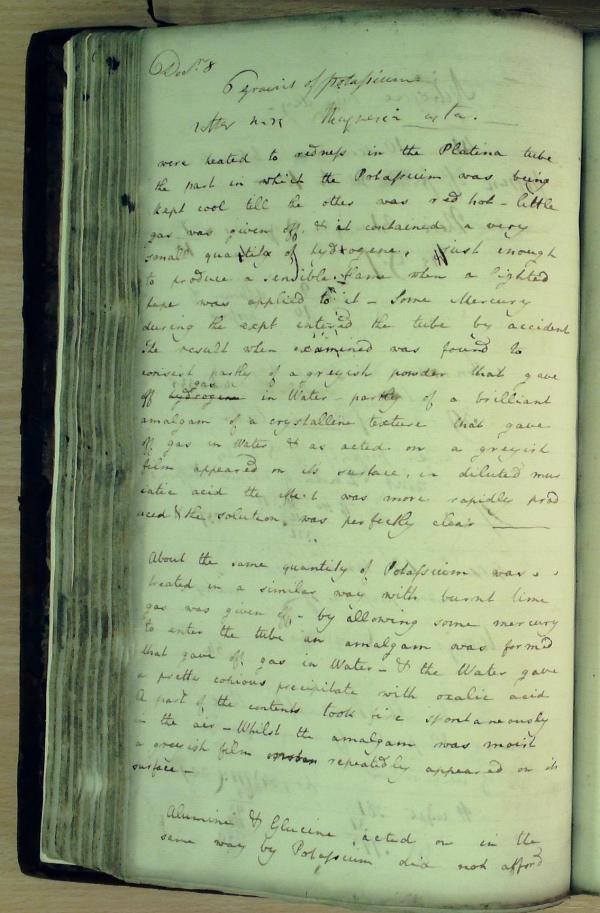 Decr. 8
6 grains of potassium
Magnesia
were heated to redness in the Platina tube
the part in which the Potassium was being
kept cool till the other was red hot - little
gas was given off & it contained a very
small quantity of hydrogene, just enough
to produce a sensible flame when a lighted
tape was applied to it - Some Mercury
during the expt entered the tube by accident
The result when examined was found to
consist partly of a greyish powder that gave
off hydrogene gas in Water - partly of a brilliant
amalgam of a crystalline texture that gave
off gas in Water & as acted on a greyish
film appeared on its surface, in diluted mur
iatic acid the effect was more rapidly prod
uced & the solution was perfectly clear
About the same quantity of Potassium was
treated in a similar way with burnt lime
gas was given off - by allowing some mercury
to enter the tube an amalgam was form'd
that gave off gas in Water - & the Water gave
a pretty copious precipitate with oxalic acid
A part of the contents took fire spontaneously
in the air - Whilst the amalgam was moist
a greyish film repeatedly appeared on its
surface -
Alumine & Glucine acted on in the
same way by Potassium did not afford